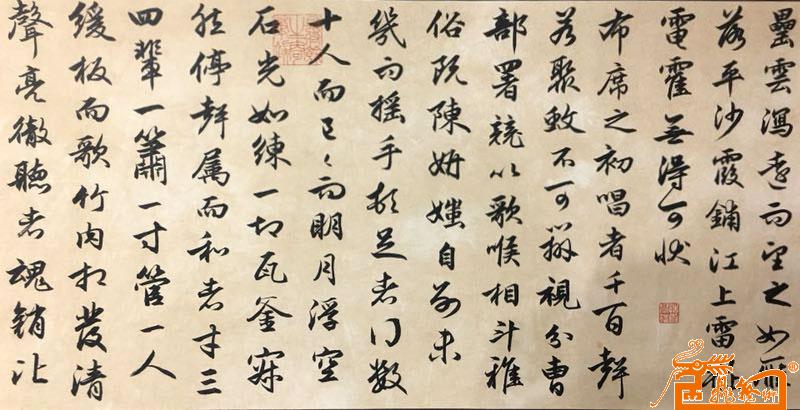 罍雲瀉遠而望之如雁
落平沙霞鋪江上雷輥
電霍無得而狀
布席之初唱者千百聲
若聚蚊不可辨視分曹
部署競以歌喉相斗雅
俗既陳妍媸自別未
幾而搖手頓足者得數
十人而已々而明月浮空
石光如練一切瓦釜寂
然停聲属而和者才三
四輩一簫一寸管一人
緩板而歌竹肉相發清
聲亮徹聽者魂銷比